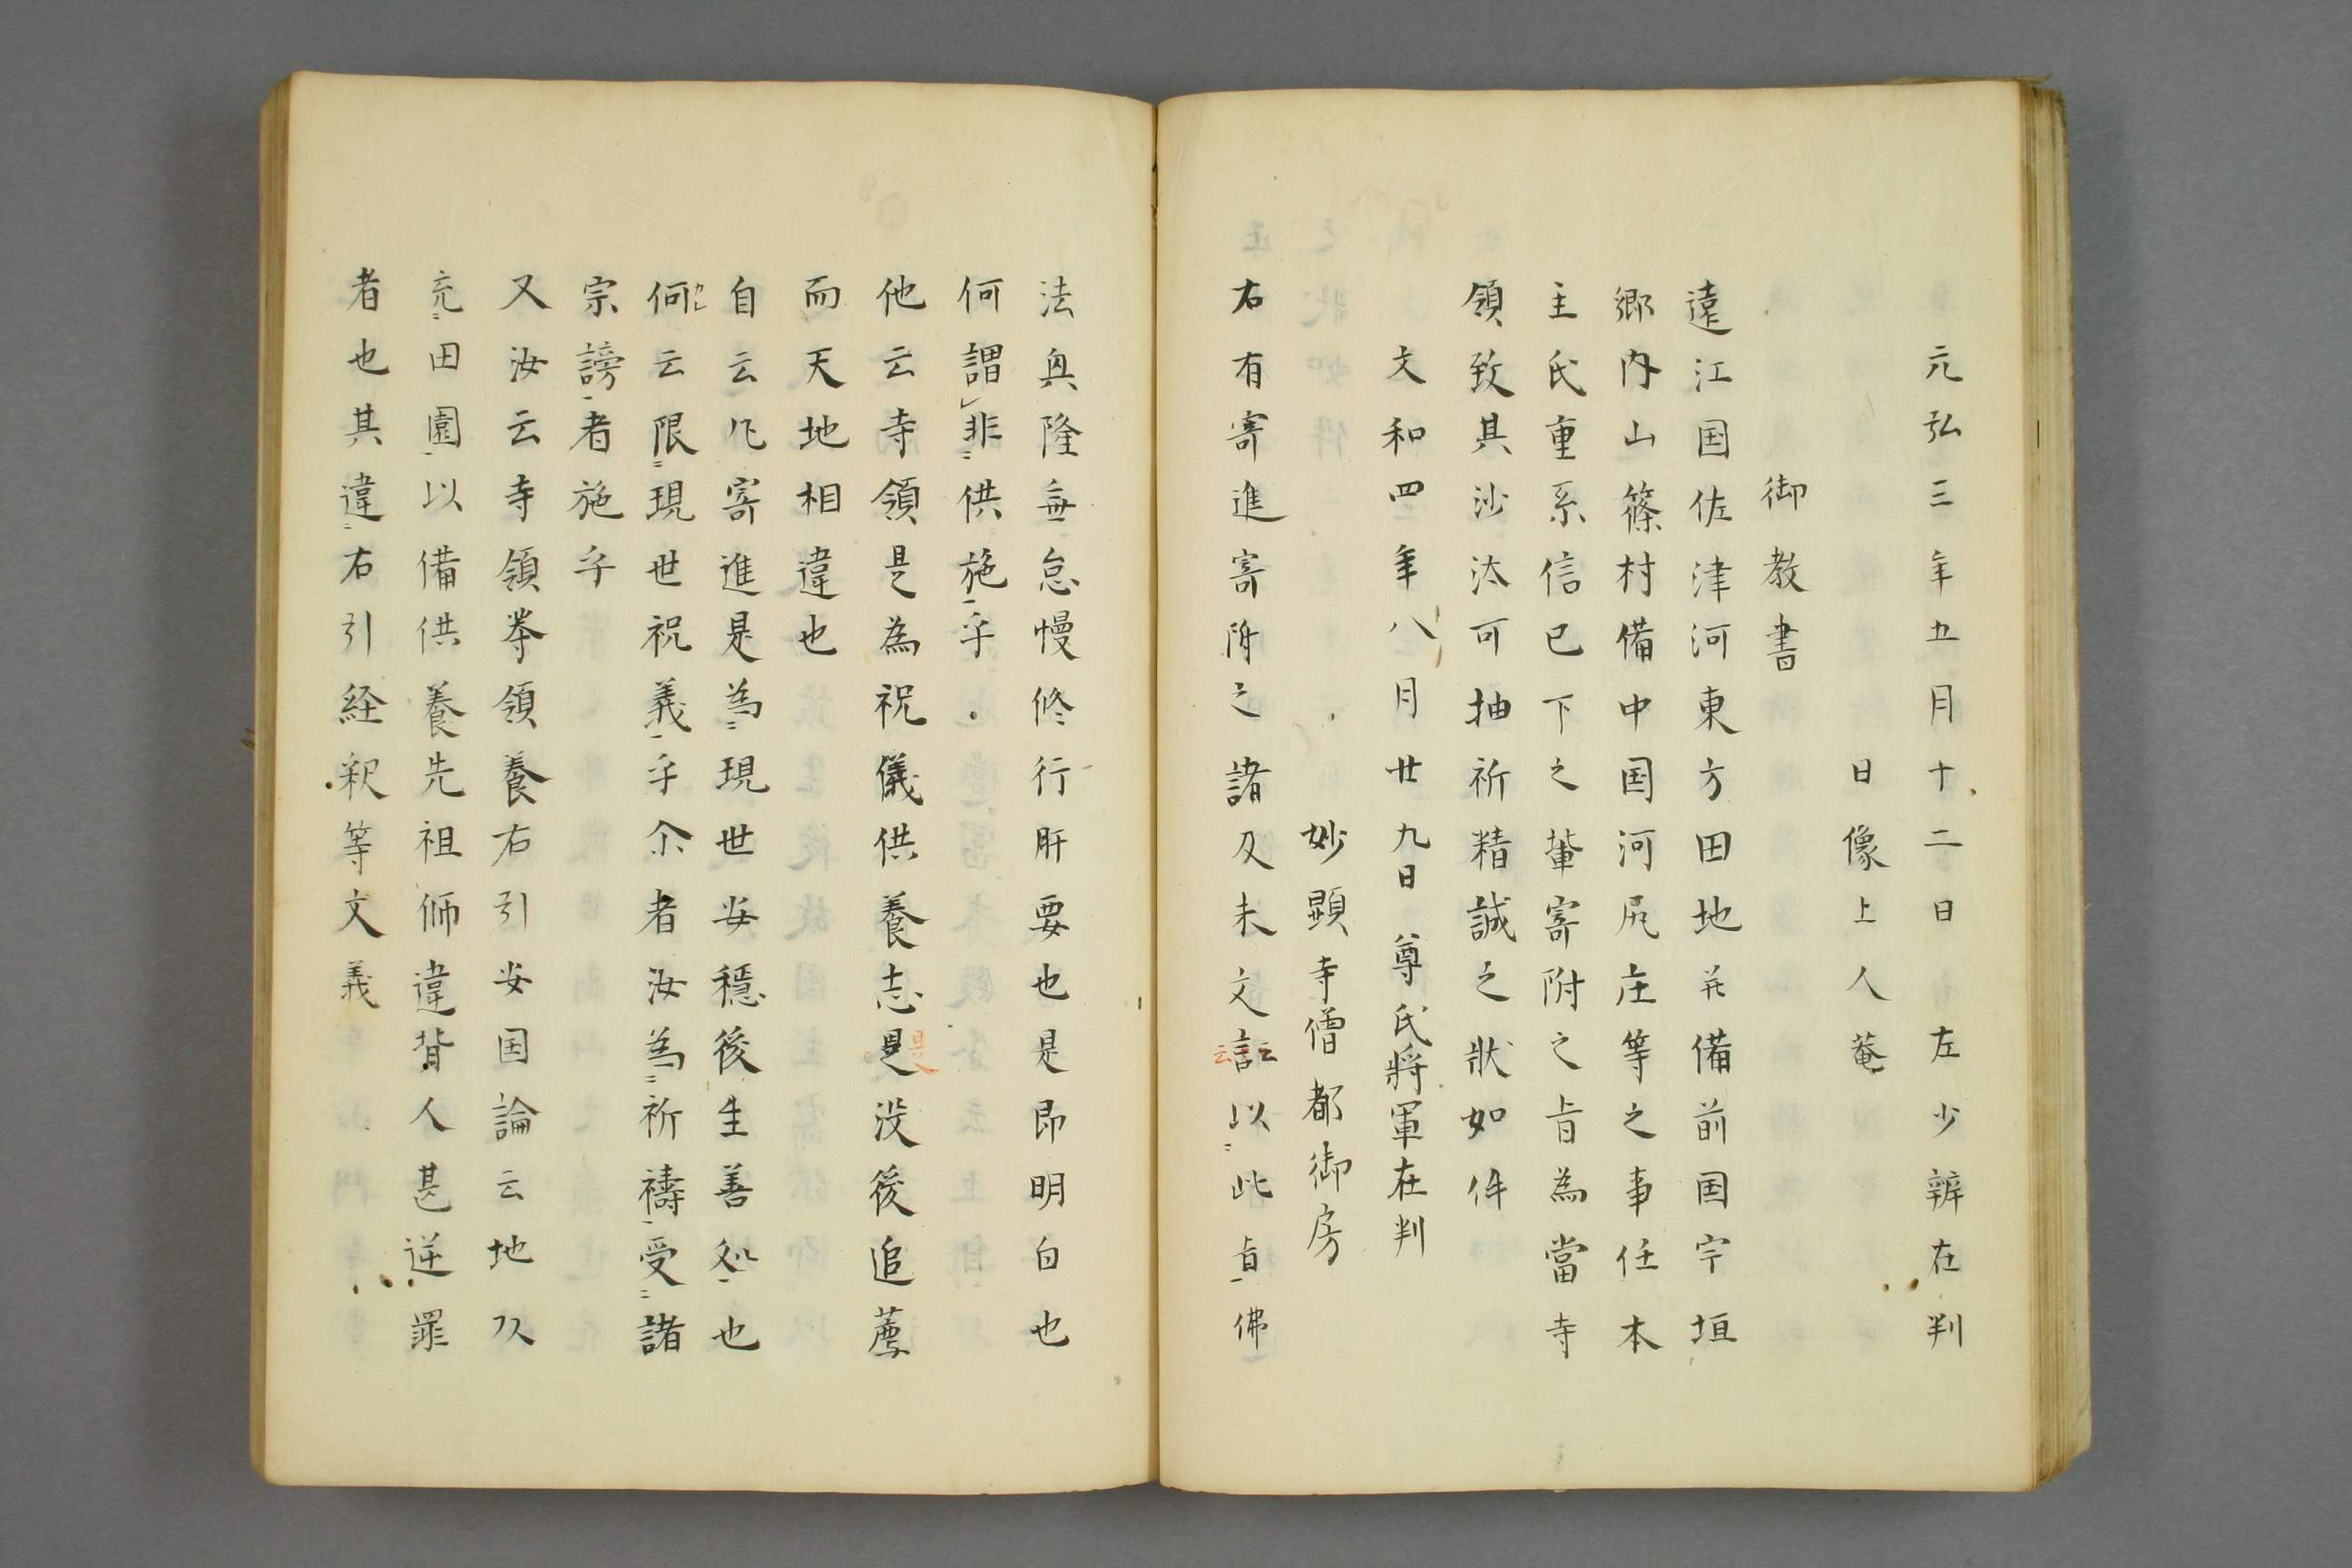 元弘三年五月十二日　左少辨在判
日像上人菴
御教書
遠江国佐津河東方田地并備前国宇垣
郷内山篠村備中国河尻庄等之事任本
主氏重系信已下之輩寄附之旨為當寺
領致其沙汰可抽祈精誠之状如件
文和四年八月廿九日　尊氏將軍在判
妙顕寺僧都御房
右有寄進寄附之諸及未文言云云以此旨佛
法興隆無怠慢修行肝要也是即明白也
何謂非供施乎
他云寺領是為祝儀供養志是没後追薦
而天地相違也
自云凡寄進是為現世安穏後生善処也
何云限現世祝義乎尒者汝為祈禱受諸
宗謗者施乎
又汝云寺領養領養右引安国論云地以
充田園以備供養先祖師違背人甚逆罪
者也其違右引経釈等文義